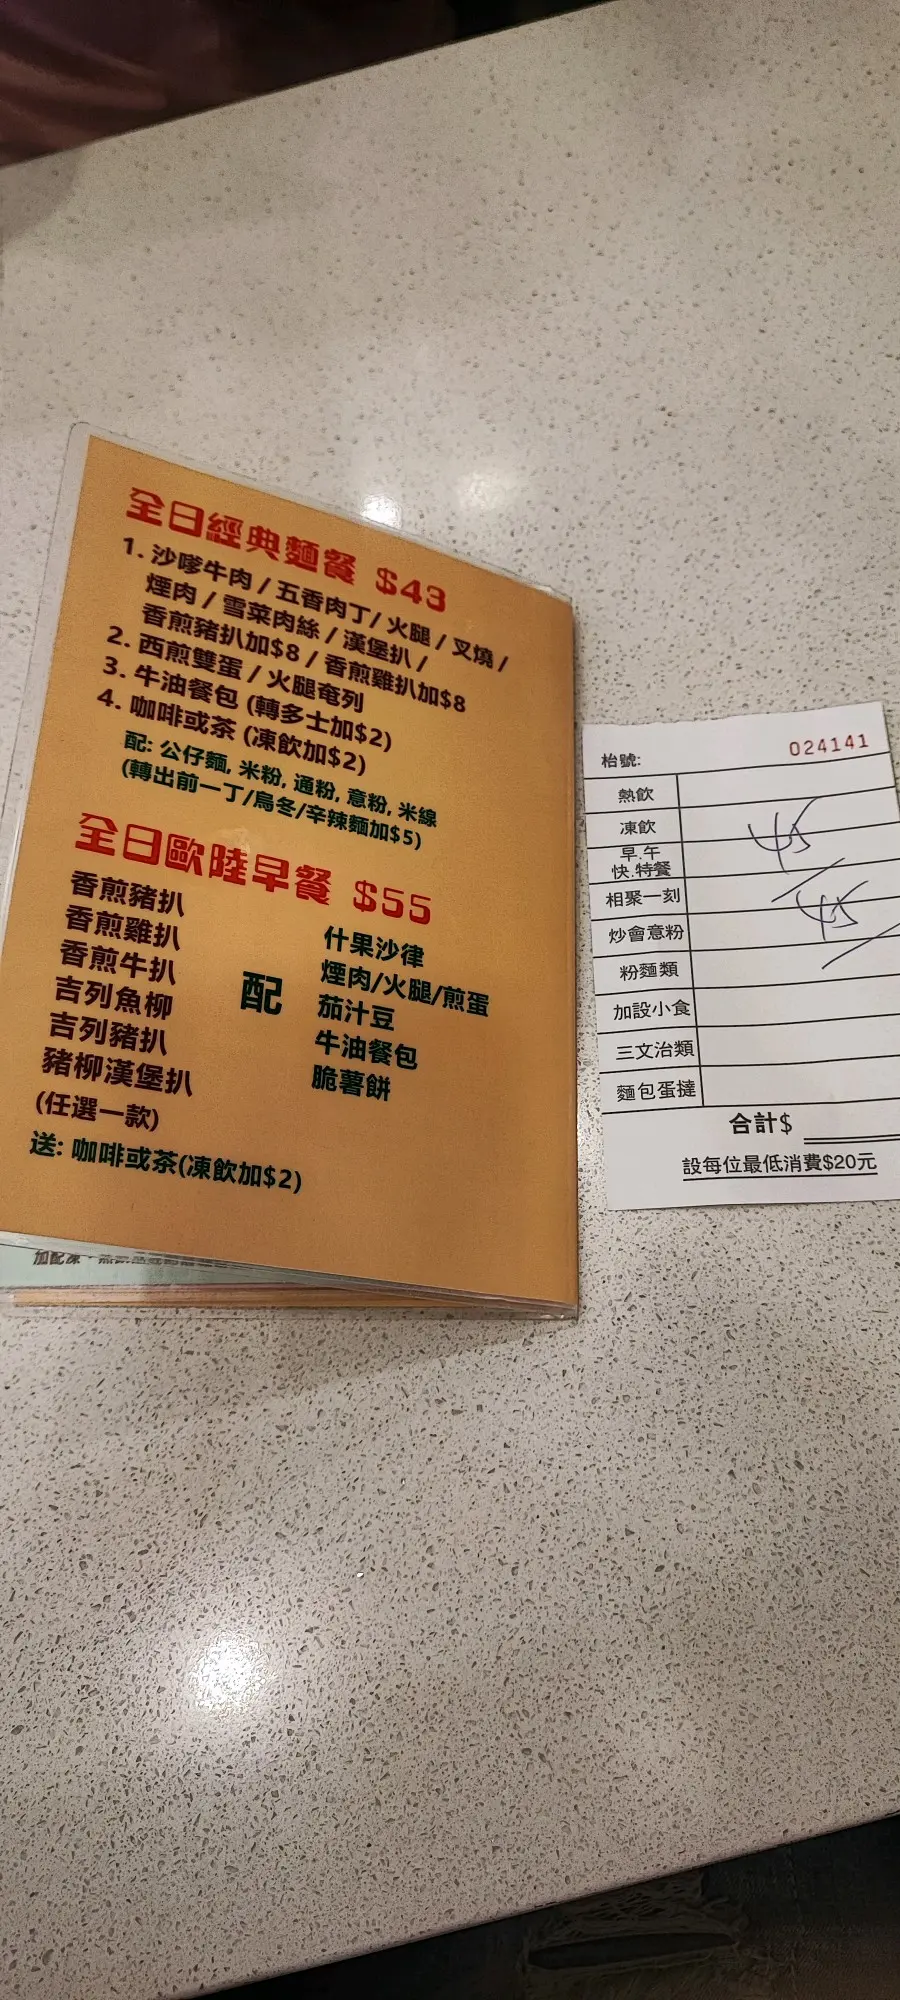 全日經典麵餐 $43
1. 沙嗲牛肉 / 五香肉丁 / 火腿 / 叉燒 /
煙肉 / 雪菜肉絲 / 漢堡扒 /
香煎豬扒加$8 / 香煎雞扒加$8
2. 西煎雙蛋 / 火腿奄列
3. 牛油餐包 (轉多士加$2)
4. 咖啡或茶 (凍飲加$2)
配: 公仔麵, 米粉, 通粉, 意粉, 米線
(轉出前一丁/烏冬/辛辣麵加$5)
全日歐陸早餐 $55
香煎豬扒
香煎雞扒
香煎牛扒
吉列魚柳
吉列豬扒
豬柳漢堡扒
(任選一款)
配
什果沙律
煙肉/火腿/煎蛋
茄汁豆
牛油餐包
脆薯餅
送: 咖啡或茶(凍飲加$2)
枱號: 024141
熱飲
凍飲
早.午
快.特餐
相聚一刻
炒會意粉
粉麵類
加設小食
三文治類
麵包蛋撻
45
45
合計$
設每位最低消費$20元